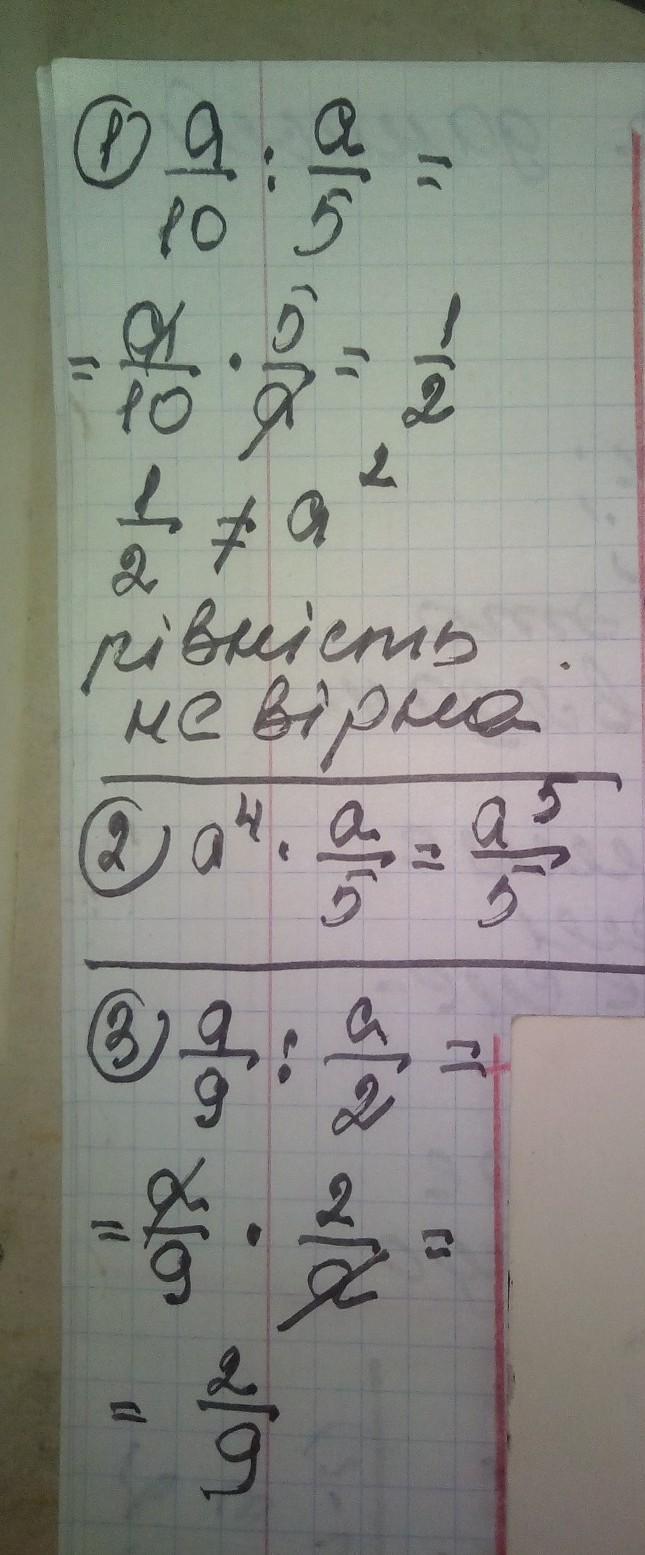 ① a/10 : a/5 =
= a/10 · 5/a = 1/2
1/2 ≠ a²
рівність
не вірна
② a⁴ · a/5 = a⁵/5
③ a/9 : a/2 =
= a/9 · 2/a =
= 2/9